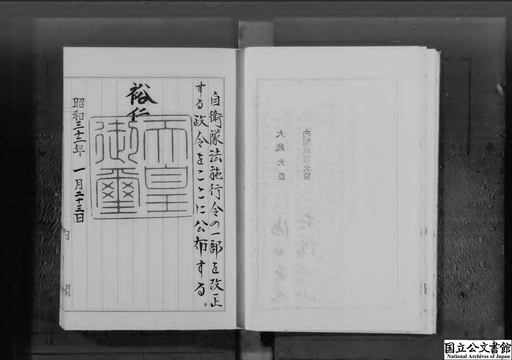 自衛隊法施行令の一部を改正
する政令をここに公布する。
裕仁
天皇
御璽
昭和三十二年一月二十三日
内閣
大蔵大臣
国立公文書館
National Archives of Japan